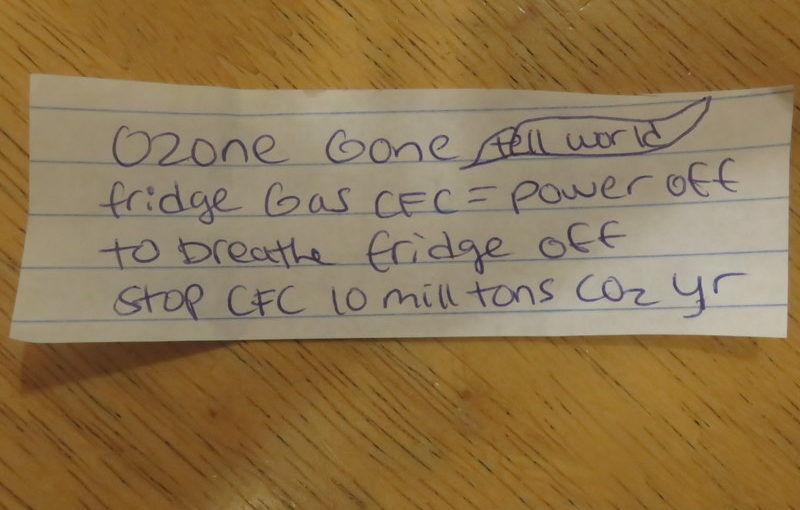 Ozone Gone tell world
fridge Gas CFC = power off
to breathe fridge off
stop CFC 10 mill tons CO2 yr